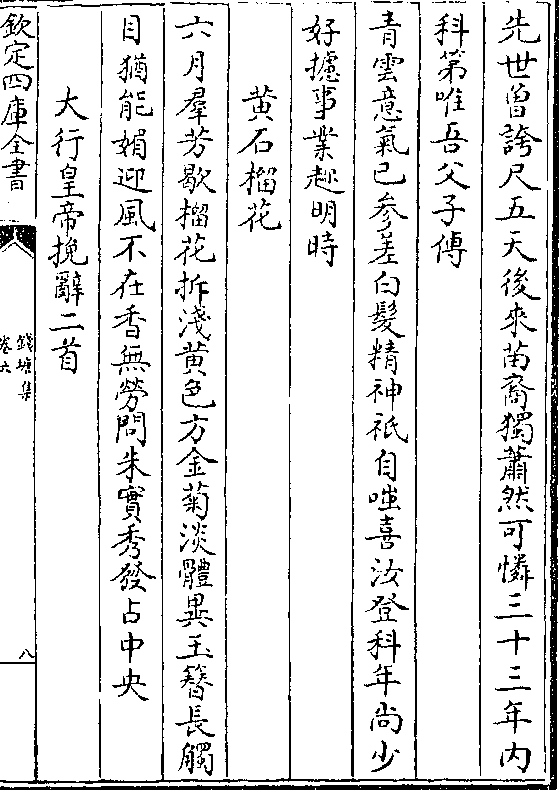 先世曽誇尺五天後來苗裔獨蕭然可憐三十三年内
科第唯吾父子傳
青雲意氣已參差白髮精神祇自嗤喜汝登科年尚少
好攄事業趂明時
黄石榴花
六月羣芳歇榴花拆淺黄色方金菊淡體異玉簪長觸
目猶能媚迎風不在香無勞問朱實秀發占中央
大行皇帝挽辭二首
欽定四庫全書
錢塘集
卷六
八